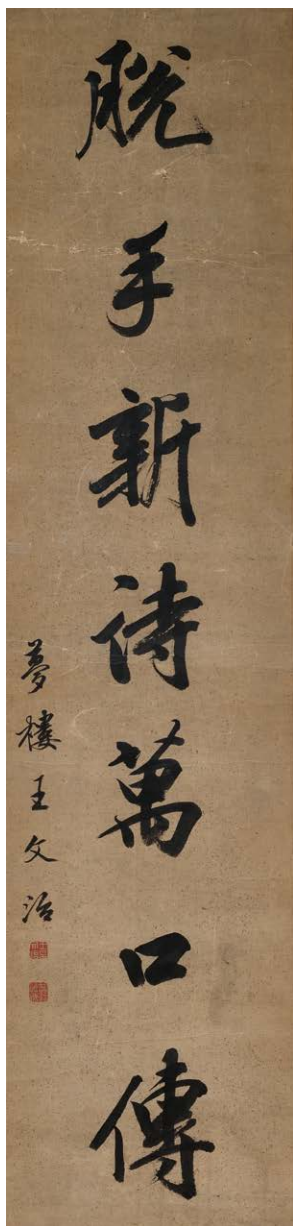 脫手新詩萬口傳
夢樓王文治